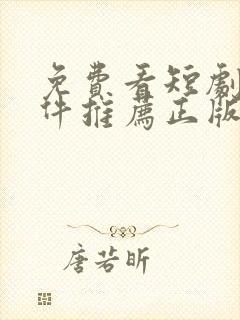 免費看短劇
件推薦正版
唐若昕